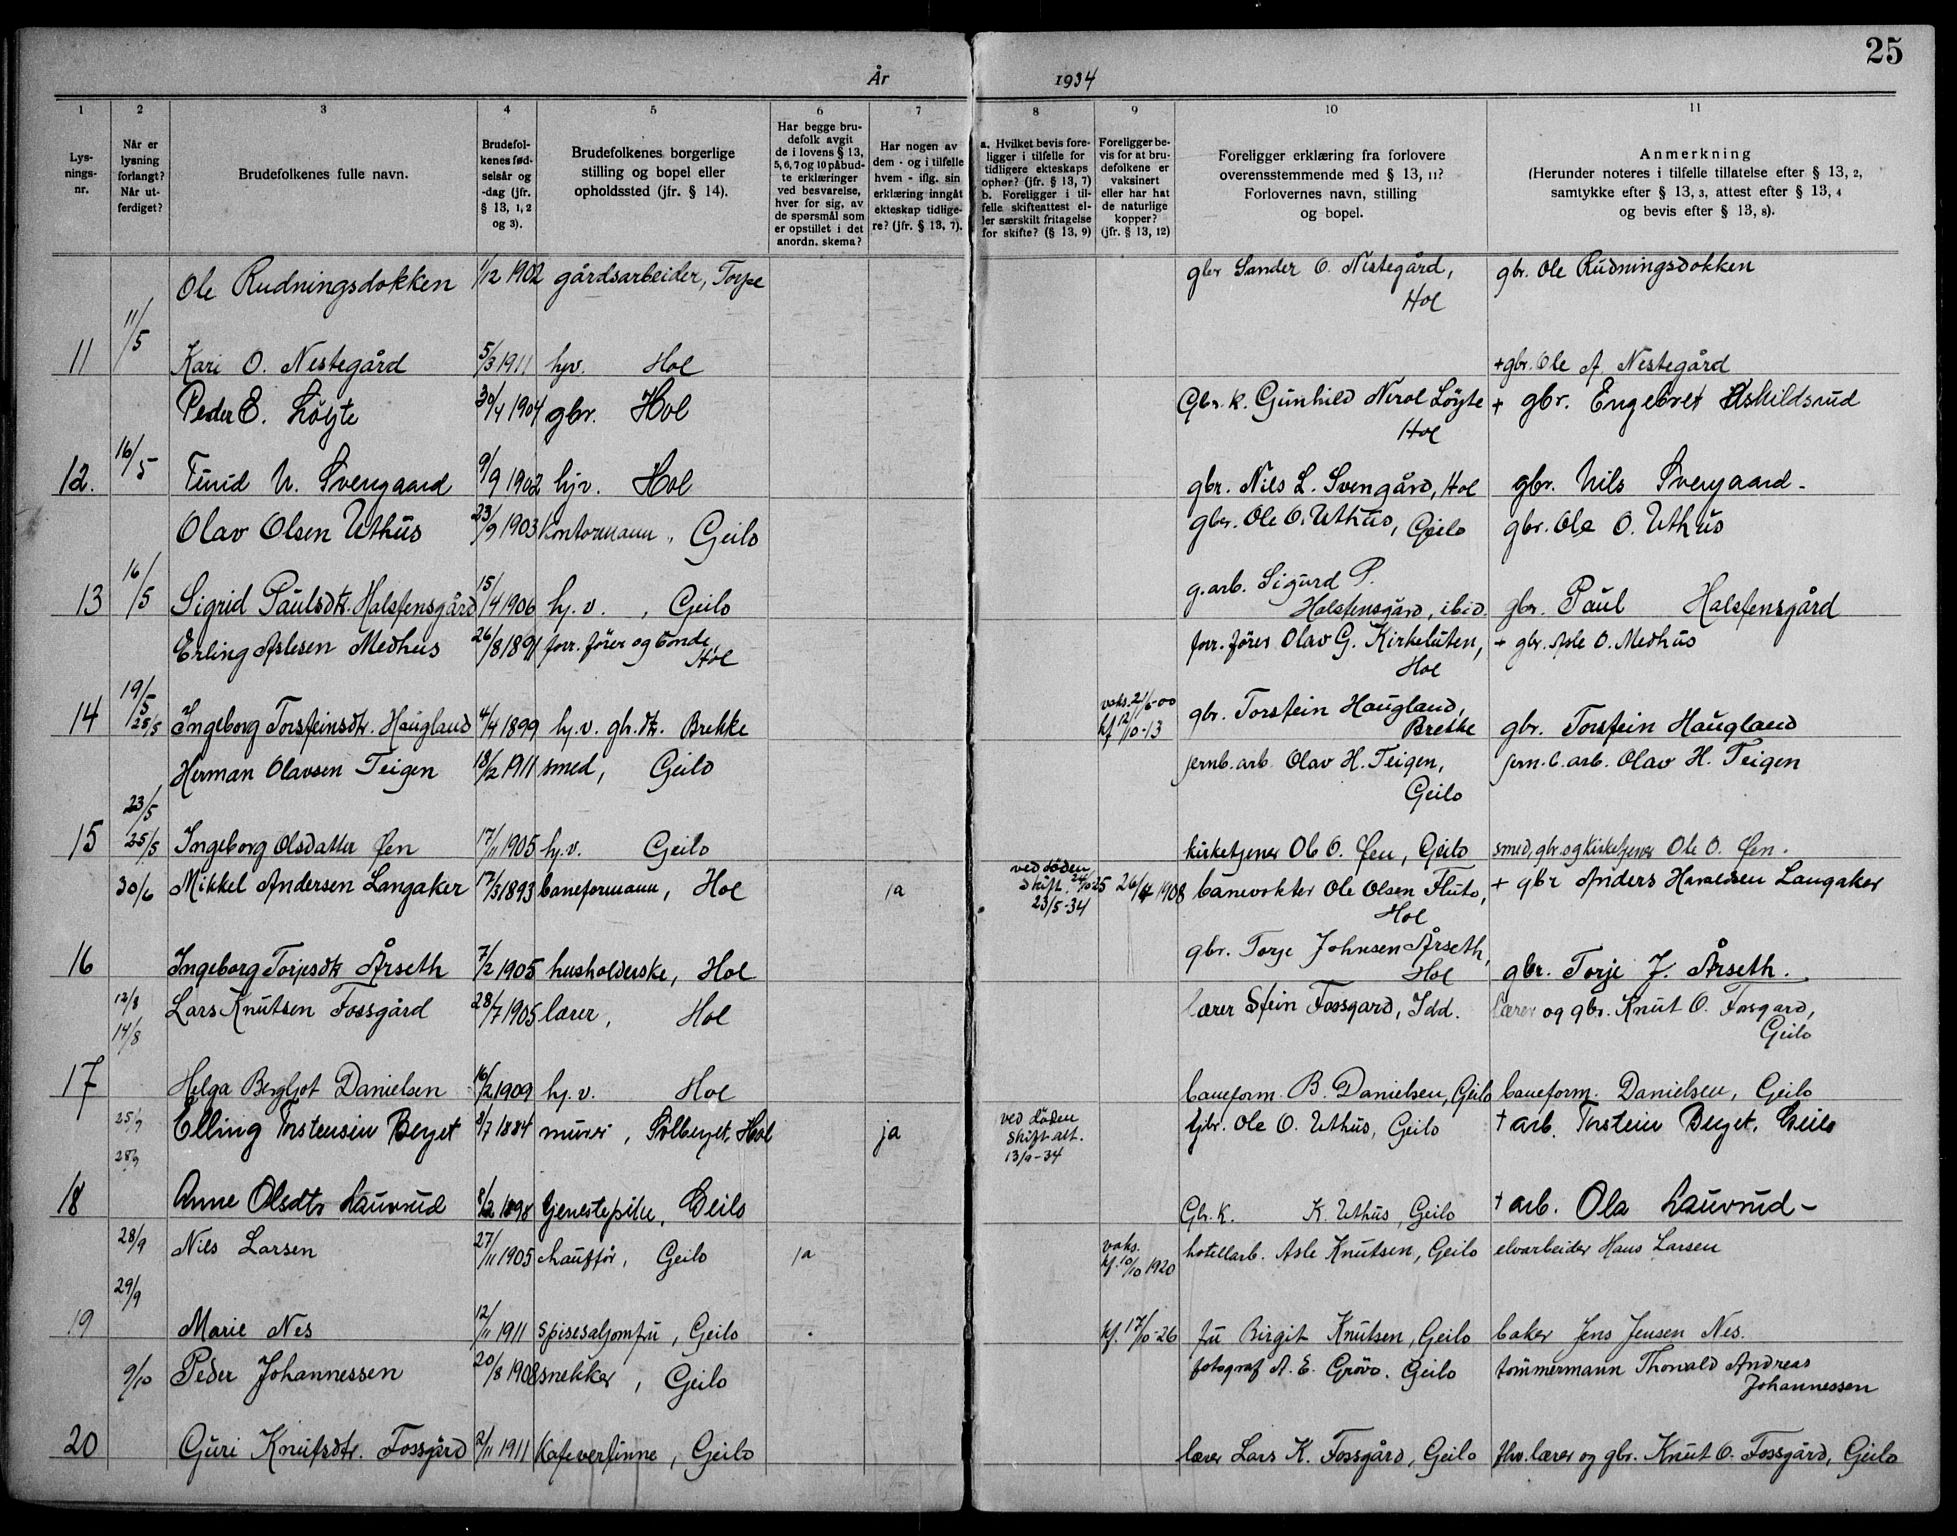 25
År 1934
1 2 3 4 5 6 7 8 9 10 11
Lys-
nings-
nr.
Når er
lysning
forlangt?
Når ut-
ferdiget?
Brudefolkenes fulle navn.
Brudefol-
kenes fød-
selsår og
-dag (jfr.
§ 13, 1, 2
og 3).
Brudefolkenes borgerlige
stilling og bopel eller
opholdssted (jfr. § 14).
Har begge bru-
defolk avgit
de i lovens § 13,
5, 6, 7 og 10 påbud-
te erklæringer
ved besvarelse,
hver for sig, av
de spørsmål som
er opstillet i det
anordn. skema?
Har nogen av
dem - og i tilfelle
hvem - iflg. sin
erklæring inngåt
ekteskap tidlige-
re? (jfr. § 13, 7).
a. Hvilket bevis fore-
ligger i tilfelle for
tidligere ekteskaps
ophør? (jfr. § 13, 7)
b. Foreligger i til-
felle skifteattest el-
ler særskilt fritagelse
for skifte? (§ 13, 9)
Foreligger be-
vis for at bru-
defolkene er
vaksinert
eller har hat
de naturlige
kopper?
(jfr. § 13, 12)
Foreligger erklæring fra forlovere
overensstemmende med § 13, 11?
Forlovernes navn, stilling
og bopel.
Anmerkning
(Herunder noteres i tilfelle tillatelse efter § 13, 2,
samtykke efter § 13, 3, attest efter § 13, 4
og bevis efter § 13, 8).
Ole Rudningsdokken 1/12 1902 gårdsarbeider, Torpe gbr Sander O. Nestegård, Hol gbr. Ole Rudningsdokken
11 11/5 Kari O. Nestegård 5/3 1911 hjv. Hol + gbr. Ole A. Nestegård
Peder E. Løyte 30/4 1904 gbr. Hol Gbr. k. Gunhild Nirol Løyte Hol + gbr. Engebret Askildsrud
12. 16/5 Turid N. Svengaard 9/9 1902 hjv. Hol gbr. Nils L. Svengård, Hol gbr. Nils Svengaard -
Olav Olsen Uthus 23/9 1903 kontormann, Geilo gbr. Ole O. Uthus, Geilo gbr. Ole O. Uthus
13 16/5 Sigrid Paulsdtr. Halstensgård 15/4 1906 hj.v., Geilo g.arb. Sigurd P. Halstensgård, ibid. gbr. Paul Halstensgård
Erling Aslesen Medhus 26/8 1891 forr. fører og bonde, Hol forr. fører Olav G. Kirkeluten, Hol + gbr. Asle O. Medhus
14 19/5 25/5 Ingeborg Torsteinsdtr. Haugland 4/4 1899 hj.v. gbr.dtr. Brekke vaks. 21/6-00 kf 12/10-13 gbr. Torstein Haugland, Brekke gbr. Torstein Haugland
Herman Olavsen Teigen 18/2 1911 smed, Geilo jernb.arb. Olav H. Teigen, Geilo jern.b.arb. Olav H. Teigen
15 23/5 25/5 Ingeborg Olsdatter Øen 17/11 1905 hj.v. Geilo kirketjener Ole O. Øen, Geilo smed, gbr. og kirketjener Ole O. Øen.
30/6 Mikkel Andersen Langaker 17/3 1893 baneformann, Hol ja ved døden skift. 24/10 25 23/5-34 26/4 1908 banevokter Ole Olsen Fluto, Hol + gbr Anders Haraldsen Langaker
16 Ingeborg Torjesdtr Årseth 7/2 1905 husholderske, Hol gbr. Torje Johnsen Årseth, Hol gbr. Torje J. Årseth.
12/8 14/8 Lars Knutsen Fossgård 28/7 1905 lærer, Hol lærer Stein Fossgard, Idd. lærer og gbr. Knut O. Fossgard, Geilo
17 Helga Bergljot Danielsen 16/2 1909 hj.v. Hol baneform. B. Danielsen, Geilo baneform. Danielsen, Geilo
25/9 28/9 Elling Torstensen Berget 3/7 1884 murer, Solberget, Hol ja ved døden skift.att. 13/9-34 Gbr. Ole O. Uthus, Geilo + arb. Torstein Berget, Geilo
18 Anne Olsdtr Lauvrud 8/2 1898 tjenestepike, Geilo Gbr.k. K. Uthus, Geilo + arb. Ola Lauvrud -
28/9 Nils Larsen 27/11 1905 chauffør, Geilo ja vaks. kf. 10/10 1920 hotellarb. Asle Knutsen, Geilo elvarbeider Hans Larsen
29/9
19 Marie Nes 12/11 1911 spisesaljomfru, Geilo kf. 17/10-26 fru Birgit Knutsen, Geilo baker Jens Jensen Nes.
9/10 Peder Johannessen 20/8 1908 snekker, Geilo fotograf A. E. Grövo. Geilo tømmermann Thorvald Andreas Johannessen
20 Guri Knutsdtr. Fossgård 2/11 1911 Kafevertinne, Geilo lærer Lars K. Fossgård, Geilo fhv. lærer og gbr. Knut O. Fossgård, Geilo